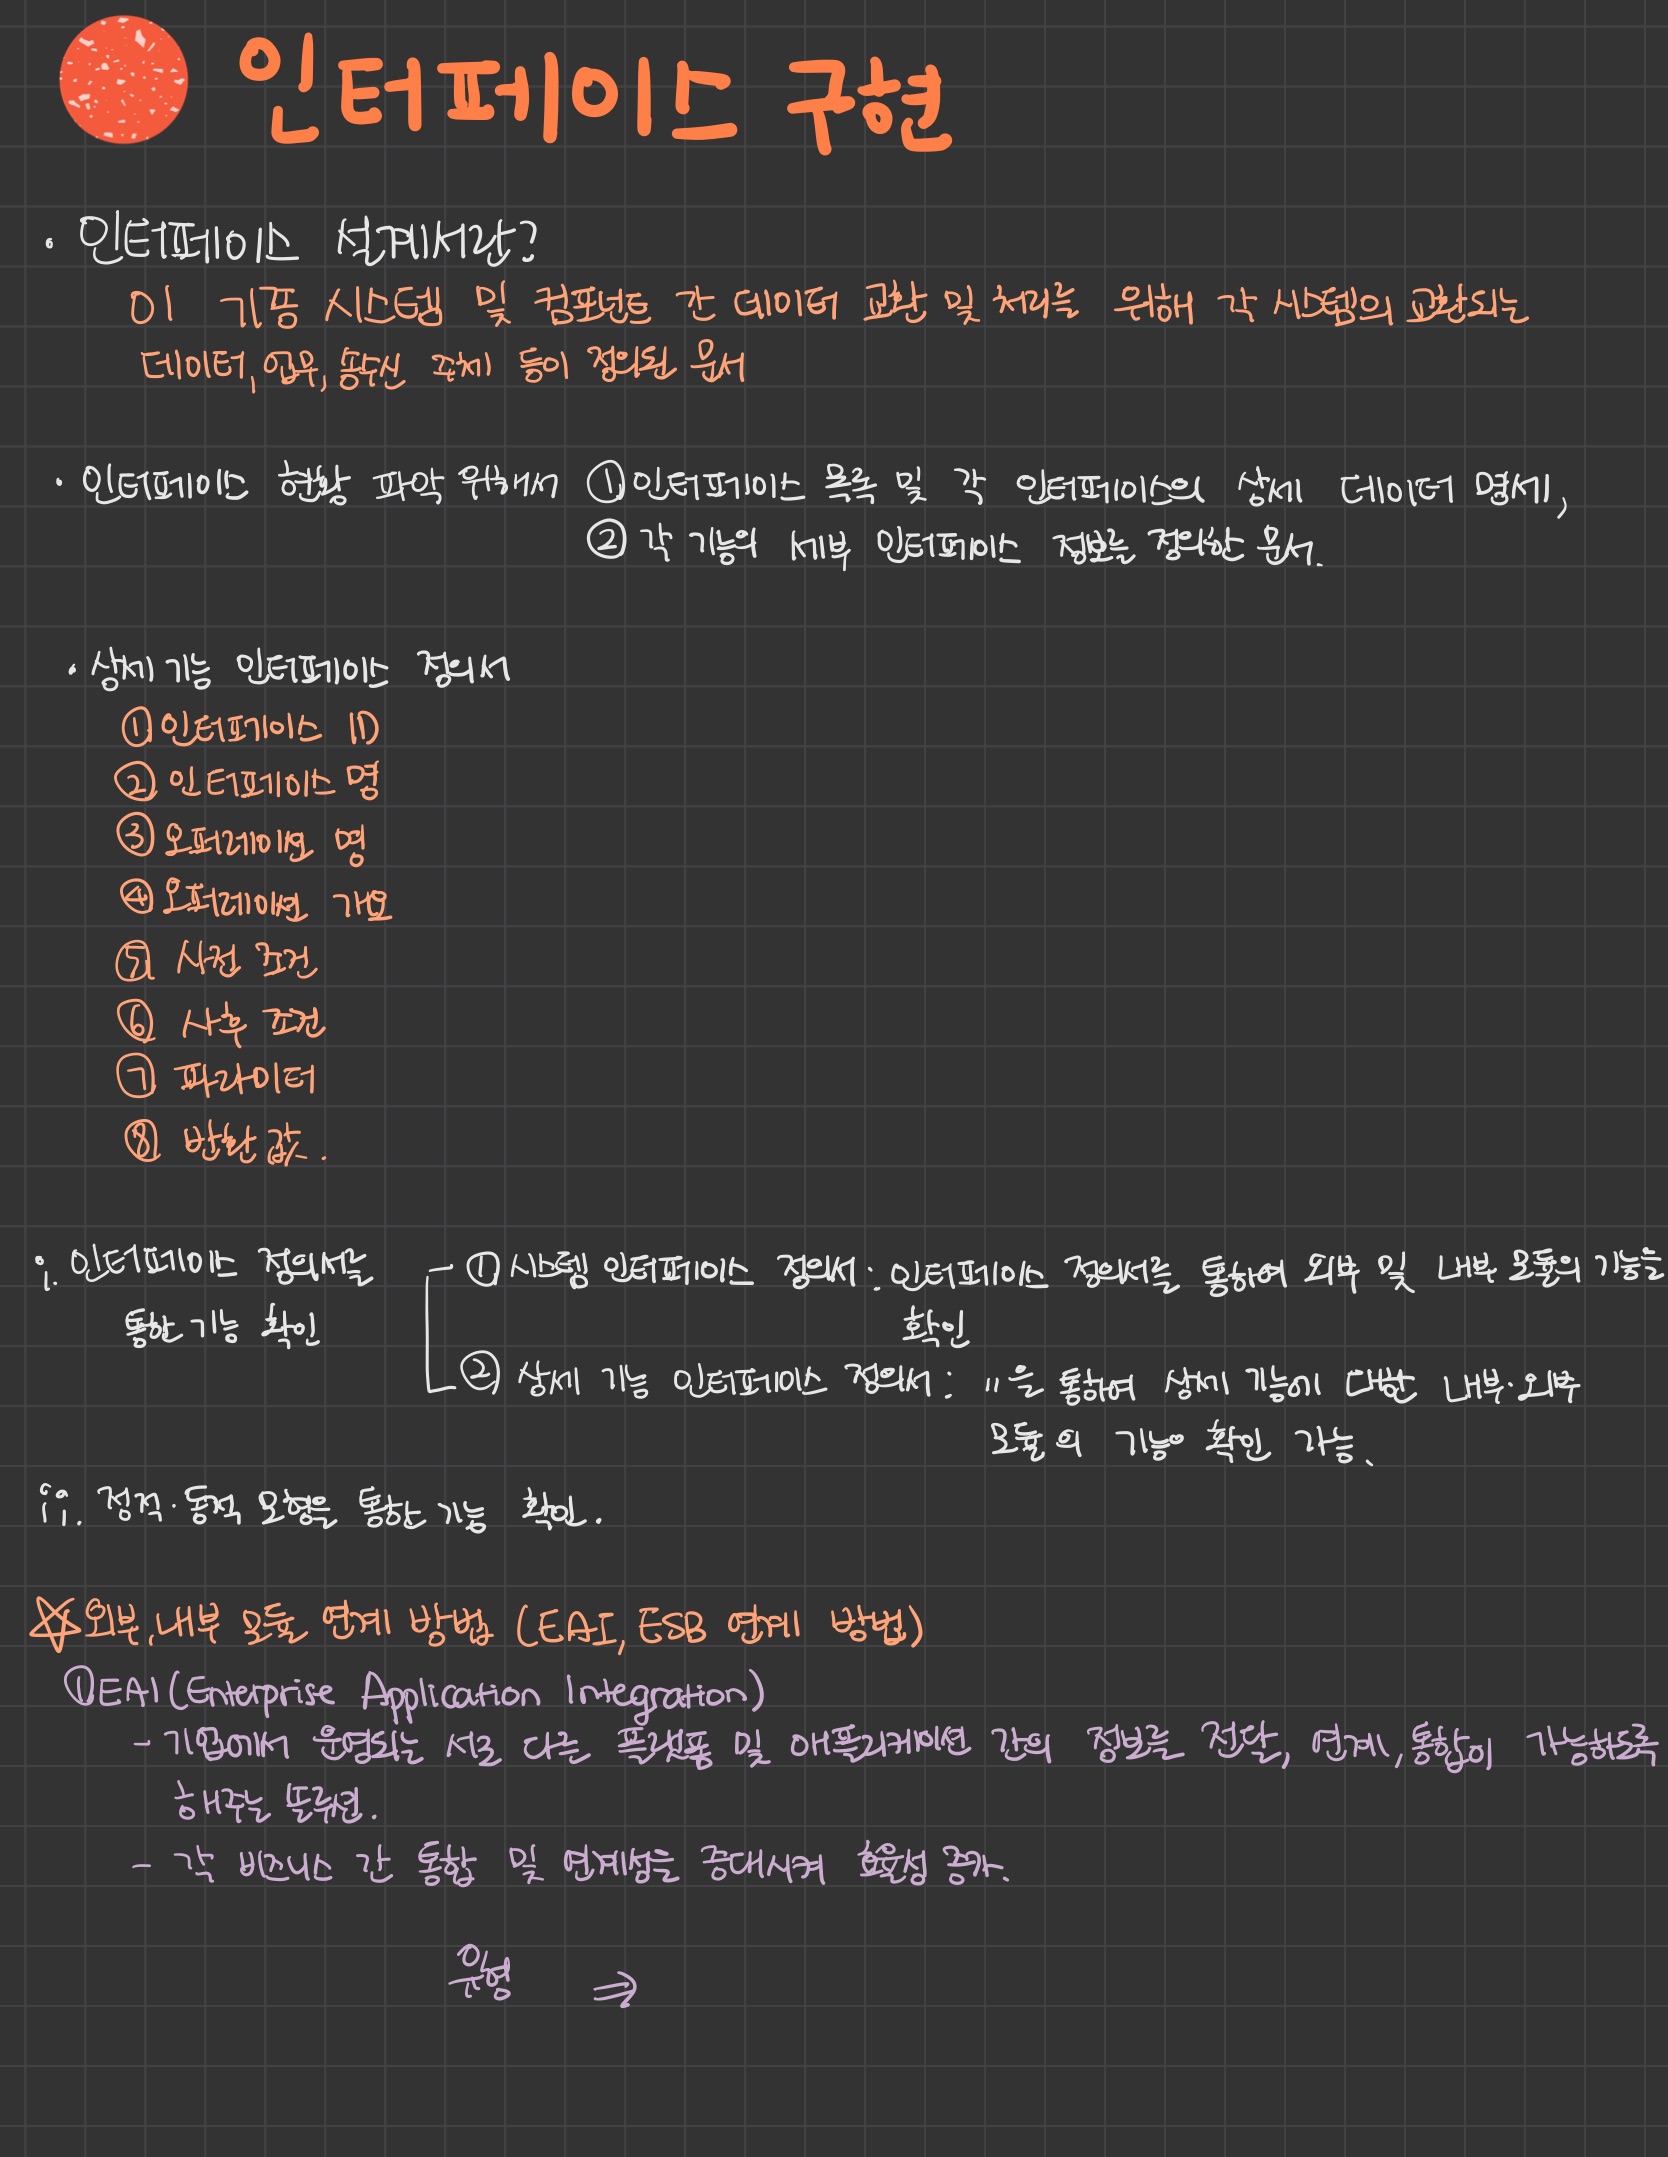 인터페이스 구현
· 인터페이스 설계서란?
이 기종 시스템 및 컴포넌트 간 데이터 교환 및 처리를 위해 각 시스템의 교환되는
데이터, 업무, 송수신 주체 등이 정의된 문서
· 인터페이스 현황 파악 위해서 ① 인터페이스 목록 및 각 인터페이스의 상세 데이터 명세,
② 각 기능의 세부 인터페이스 정보를 정의한 문서.
· 상세 기능 인터페이스 정의서
① 인터페이스 ID
② 인터페이스 명
③ 오퍼레이션 명
④ 오퍼레이션 개요
⑤ 사전 조건
⑥ 사후 조건
⑦ 파라미터
⑧ 반환 값.
i. 인터페이스 정의서를 ① 시스템 인터페이스 정의서 : 인터페이스 정의서를 통하여 외부 및 내부 모듈의 기능을
통한 기능 확인 확인
② 상세 기능 인터페이스 정의서 : 〃을 통하여 상세 기능에 대한 내부·외부
모듈의 기능 확인 가능.
ii. 정적·동적 모형을 통한 기능 확인.
☆ 외부, 내부 모듈 연계 방법 (EAI, ESB 연계 방법)
① EAI (Enterprise Application Integration)
- 기업에서 운영되는 서로 다른 플랫폼 및 애플리케이션 간의 정보를 전달, 연계, 통합이 가능하도록
해주는 솔루션.
- 각 비즈니스 간 통합 및 연계성을 증대시켜 효율성 증가.
유형 ⇒